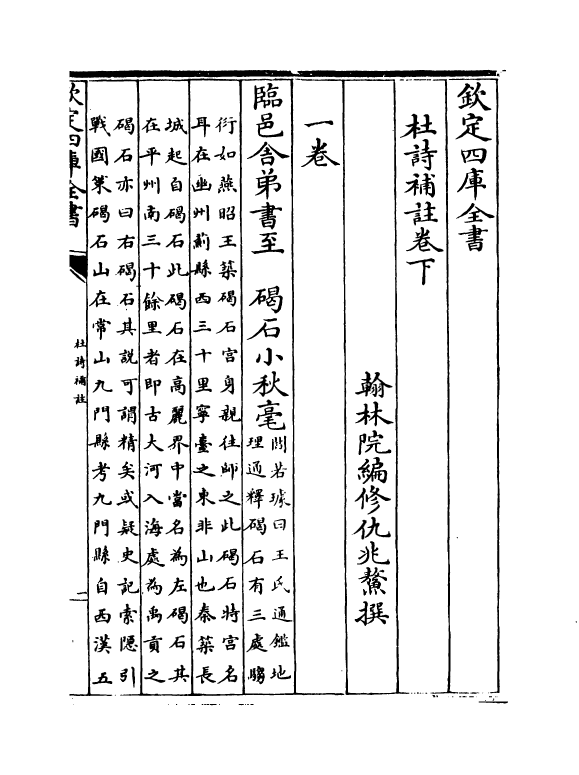 欽定四庫全書
杜詩補註卷下
翰林院編修仇兆鰲撰
一卷
臨邑舍弟書至　碣石小秋毫
閻若璩曰王氏通鑑地
理通釋碣石有三處騶
衍如燕昭王築碣石宮身親往師之此碣石特宮名
耳在幽州薊縣西三十里寧臺之東非山也秦築長
城起自碣石此碣石在高麗界中當名為左碣石其
在平州南三十餘里者即古大河入海處為禹貢之
碣石亦曰右碣石其說可謂精矣或疑史記索隱引
戰國策碣石山在常山九門縣考九門縣自西漢五
欽定四庫全書
杜詩補註